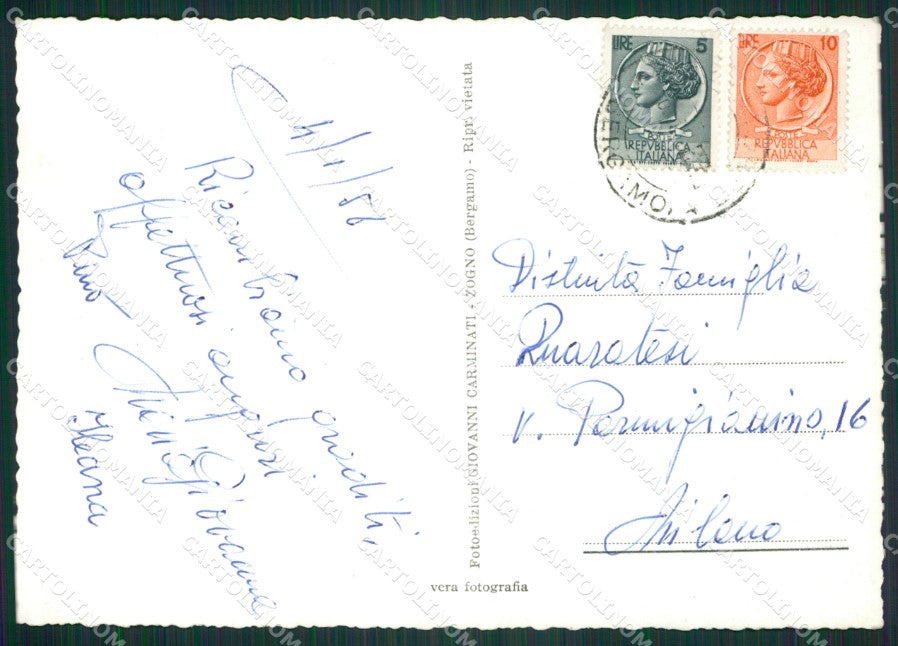 4/1/56
Ricambiamo graditi,
affettuosi auguri
Pino
Giovanna
Ileana
Fotoedizioni GIOVANNI CARMINATI - ZOGNO (Bergamo) - Ripr. vietata
vera fotografia
LIRE 5
POSTE
REPVBBLICA
ITALIANA
LIRE 10
POSTE
REPVBBLICA
ITALIANA
Distinta Famiglia
Quaratesi
v. Parmigianino, 16
Milano
CARTOLINOMANIA